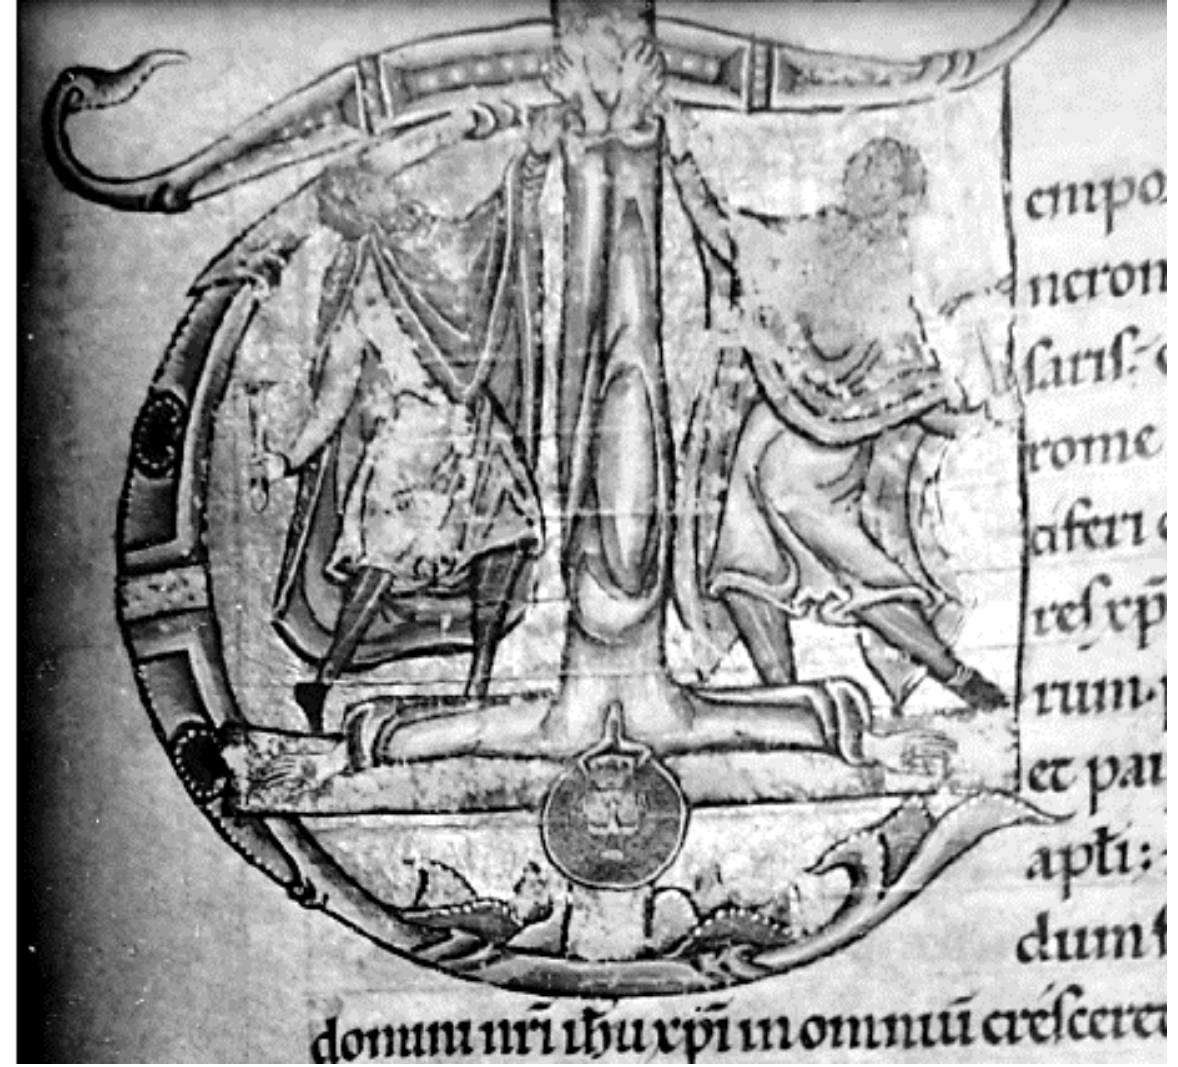 empo
neron
ſariſ:
rome
aferi
reſ xp̄
rum.
et pau
apłi:
dum
domini nr̄i ih̄u xp̄i in omniū creſceret